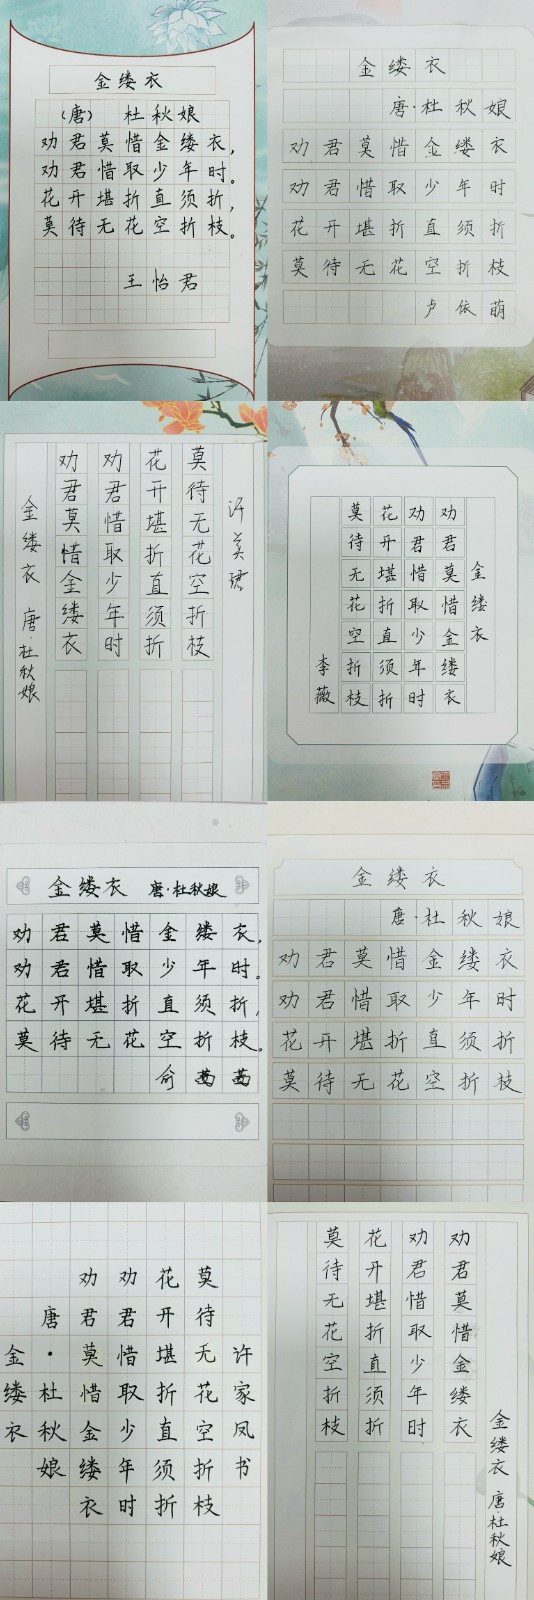 金缕衣
（唐） 杜秋娘
劝君莫惜金缕衣，
劝君惜取少年时。
花开堪折直须折，
莫待无花空折枝。
王怡君
金缕衣
唐·杜秋娘
劝君莫惜金缕衣
劝君惜取少年时
花开堪折直须折
莫待无花空折枝
卢依萌
金缕衣 唐·杜秋娘
劝君莫惜金缕衣
劝君惜取少年时
花开堪折直须折
莫待无花空折枝
许美珺
金缕衣
劝君莫惜金缕衣
劝君惜取少年时
花开堪折直须折
莫待无花空折枝
李薇
金缕衣 唐·杜秋娘
劝君莫惜金缕衣，
劝君惜取少年时。
花开堪折直须折，
莫待无花空折枝。
俞茜茜
金缕衣
唐·杜秋娘
劝君莫惜金缕衣
劝君惜取少年时
花开堪折直须折
莫待无花空折枝
金缕衣
唐·杜秋娘
劝君莫惜金缕衣
劝君惜取少年时
花开堪折直须折
莫待无花空折枝
许家凤书
金缕衣 唐·杜秋娘
劝君莫惜金缕衣
劝君惜取少年时
花开堪折直须折
莫待无花空折枝